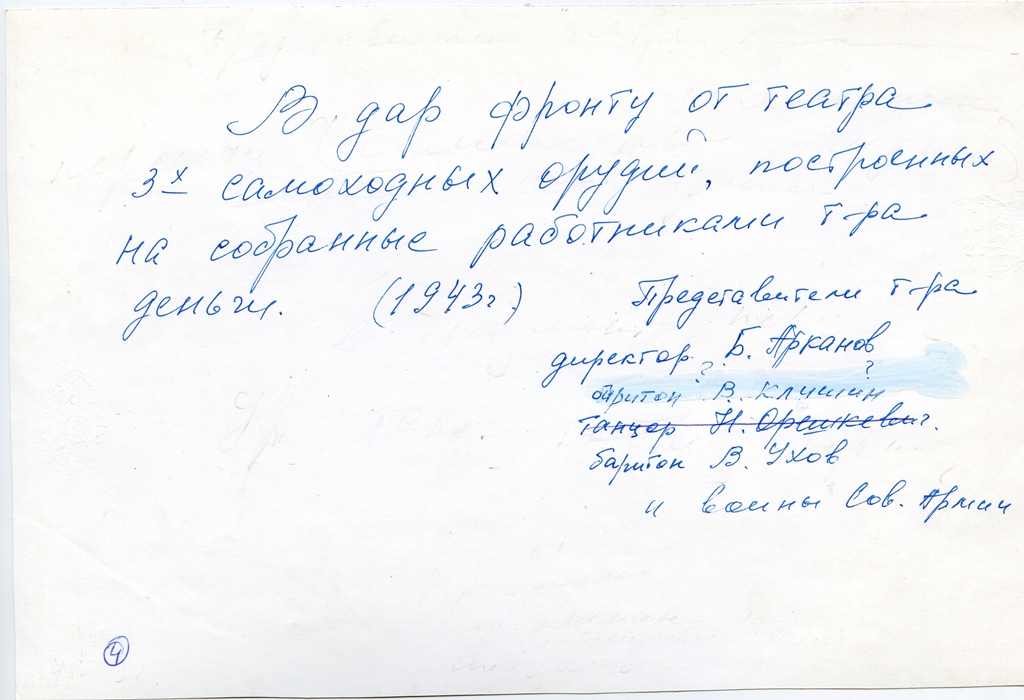 В дар фронту от театра
3х самоходных орудий, построенных
на собранные работниками т-ра
деньги. (1943г.)
Представители т-ра
директор Б. Арканов
? ?
баритон В. Клишин
танцор Н. Орешкевич.
баритон В. Ухов
и воины Сов. Армии
4